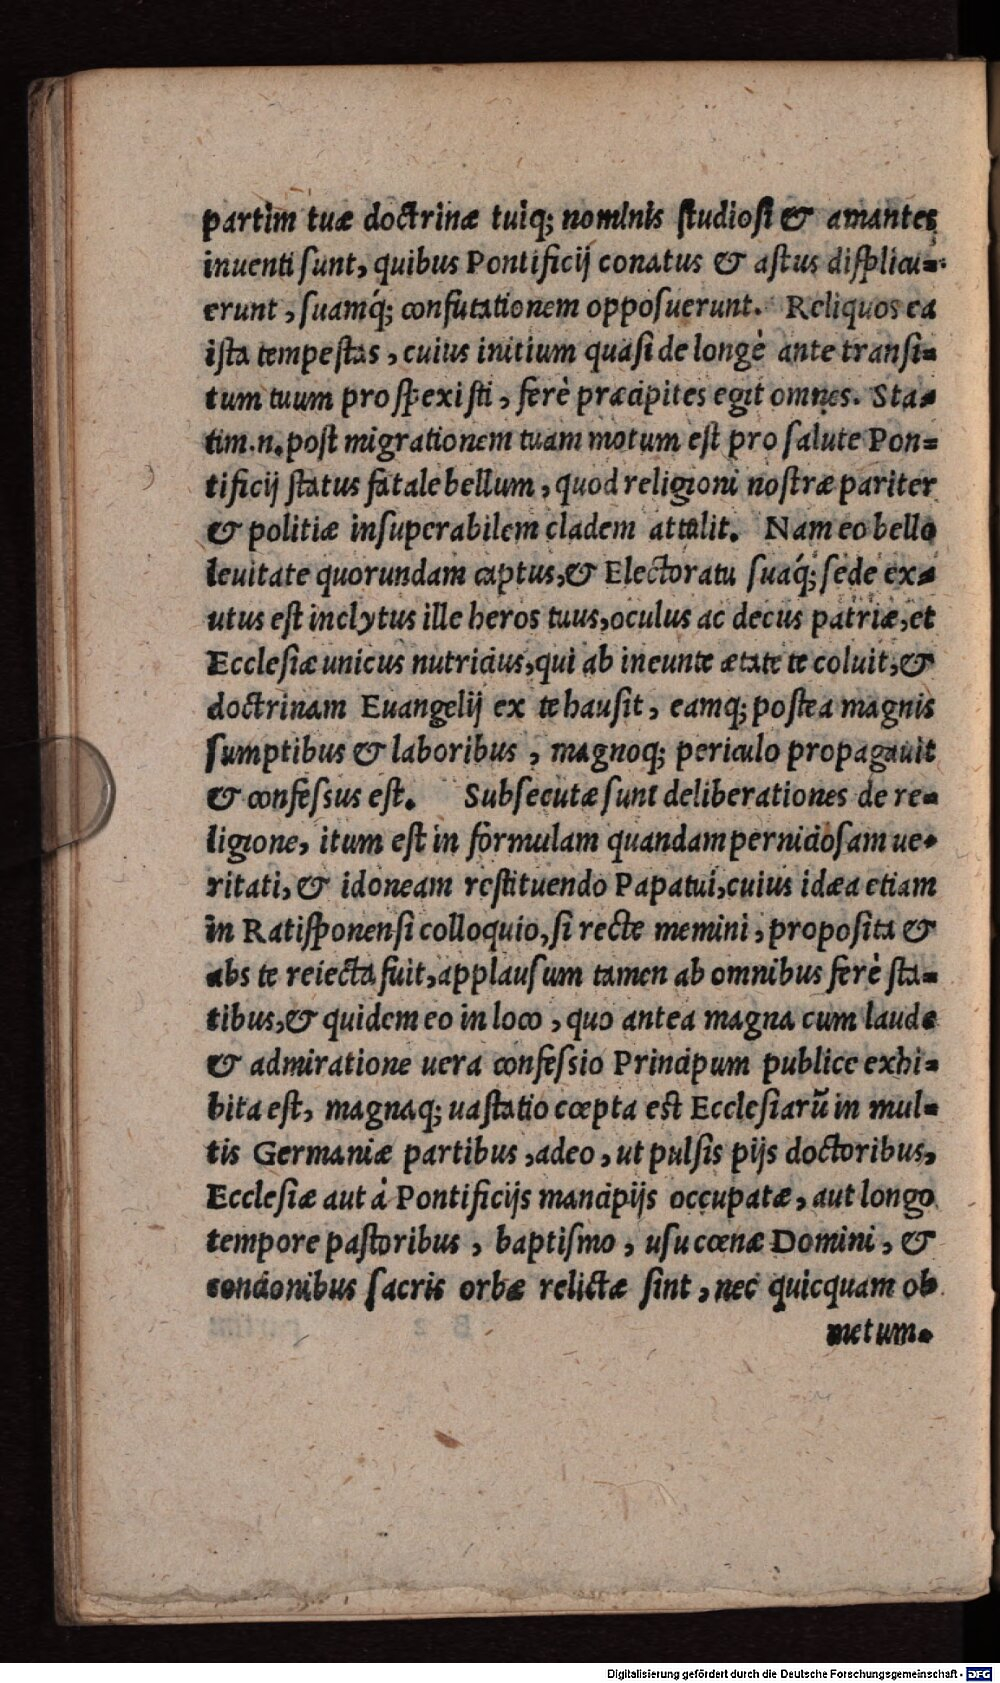 partim tuæ doctrinæ tuiq; nominis ſtudioſi & amantes
inuenti ſunt, quibus Pontificij conatus & aſtus diſplicu-
erunt, ſuamq́; confutationem oppoſuerunt. Reliquos ea
iſta tempeſtas, cuius initium quaſi de longè ante tranſi-
tum tuum proſpexiſti, ferè præcipites egit omnes. Sta-
tim.n. poſt migrationem tuam motum eſt pro ſalute Pon-
tificij ſtatus fatale bellum, quod religioni noſtræ pariter
& politiæ inſuperabilem cladem attulit. Nam eo bello
leuitate quorundam captus, & Electoratu ſuaq́; ſede ex-
utus eſt inclytus ille heros tuus, oculus ac decus patriæ, et
Eccleſiæ unicus nutricius, qui ab ineunte ætate te coluit, &
doctrinam Euangelij ex te hauſit, eamq; poſtea magnis
ſumptibus & laboribus, magnoq; periculo propagauit
& confeſſus eſt. Subſecutæ ſunt deliberationes de re-
ligione, itum eſt in formulam quandam pernicioſam ue-
ritati, & idoneam reſtituendo Papatui, cuius idæa etiam
in Ratiſponenſi colloquio, ſi recte memini, propoſita &
abs te reiecta fuit, applauſum tamen ab omnibus ferè ſta-
tibus, & quidem eo in loco, quo antea magna cum laude
& admiratione uera confeſsio Principum publice exhi-
bita eſt, magnaq; uaſtatio cœpta eſt Eccleſiarũ in mul-
tis Germaniæ partibus, adeo, ut pulſis pijs doctoribus,
Eccleſiæ aut à Pontificijs mancipijs occupatæ, aut longo
tempore paſtoribus, baptiſmo, uſu cœnæ Domini, &
concionibus ſacris orbæ relictæ ſint, nec quicquam ob
metum.
Digitalisierung gefördert durch die Deutsche Forschungsgemeinschaft - DFG